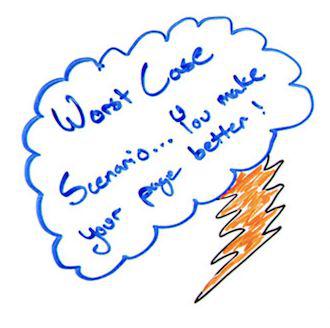 Worst Case
Scenario... You make
your page better!